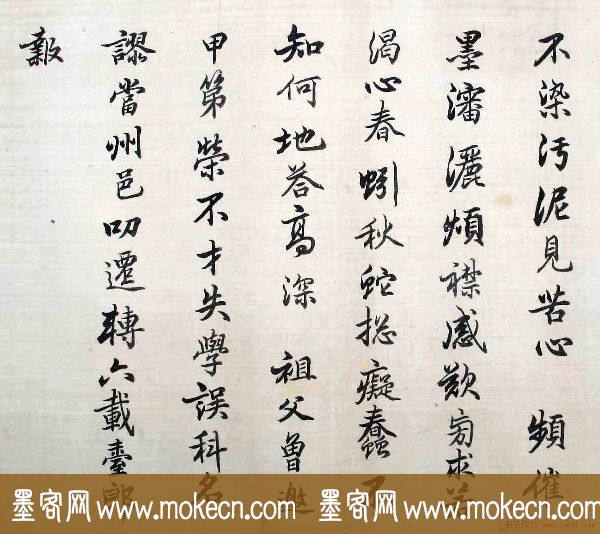 不染汚泥見苦心　頻催
墨瀋灑頻襟感歎芻求
渴心春蚓秋蛇揔癡蠢不
知何地答高深　祖父曾邀
甲第榮不才失學誤科名
謬當州邑叨遷轉六載臺郎
報
墨客网 www.mokecn.com 墨客网 www.mokecn.com